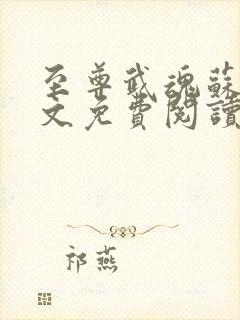 至尊武魂蘇
文免費閱讀
祁燕